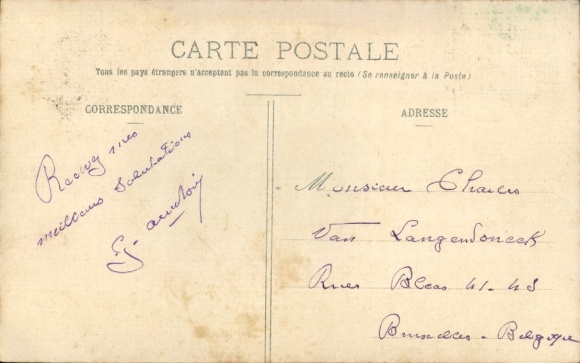 CARTE POSTALE
Tous les pays étrangers n'acceptent pas la correspondance au recto (Se renseigner à la Poste)
CORRESPONDANCE
Recevez mes
meilleurs Salutations
ADRESSE
Monsieur Charles
Van Langendonck
Rues Bleas 41-43
Bruxelles - Belgique